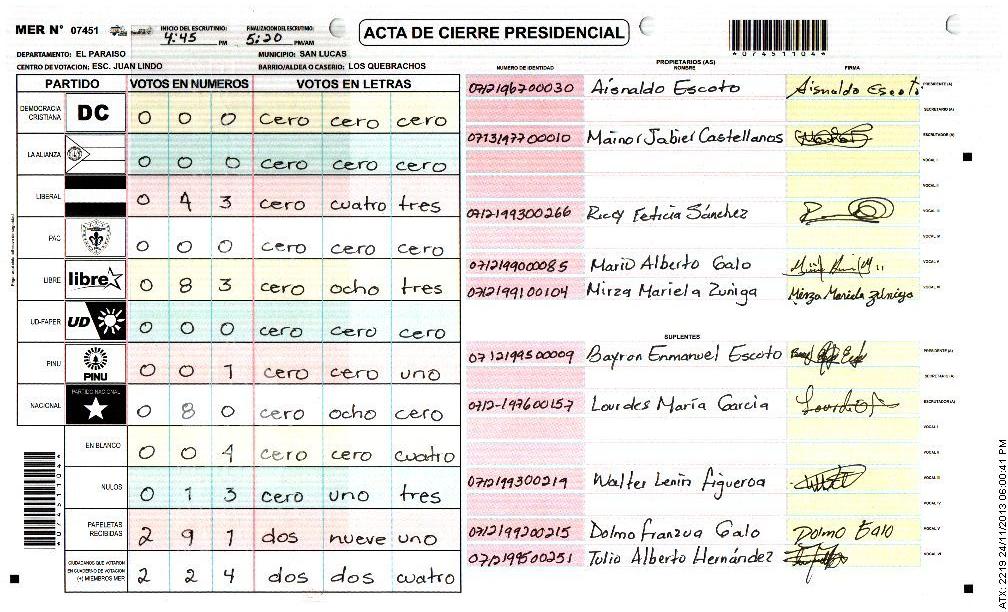 MER N° 07451
INICIO DEL ESCRUTINIO: 4:45 PM
FINALIZACION DEL ESCRUTINIO: 5:20 PM/AM
ACTA DE CIERRE PRESIDENCIAL
*07451104*
DEPARTAMENTO: EL PARAISO
MUNICIPIO: SAN LUCAS
CENTRO DE VOTACION: ESC. JUAN LINDO
BARRIO/ALDEA O CASERIO: LOS QUEBRACHOS
PARTIDO VOTOS EN NUMEROS VOTOS EN LETRAS
DEMOCRACIA CRISTIANA DC 0 0 0 cero cero cero
LA ALIANZA 0 0 0 cero cero cero
LIBERAL 0 4 3 cero cuatro tres
PAC 0 0 0 cero cero cero
LIBRE libre 0 8 3 cero ocho tres
UD-FAPER UD 0 0 0 cero cero cero
PINU PINU 0 0 1 cero cero uno
NACIONAL PARTIDO NACIONAL 0 8 0 cero ocho cero
EN BLANCO 0 0 4 cero cero cuatro
NULOS 0 1 3 cero uno tres
PAPELETAS RECIBIDAS 2 9 1 dos nueve uno
CIUDADANOS QUE VOTARON EN CUADERNO DE VOTACION (+) MIEMBROS MER 2 2 4 dos dos cuatro
*07451104*
PROPIETARIOS (AS)
NUMERO DE IDENTIDAD NOMBRE FIRMA
0712196700030 Aisnaldo Escoto Aisnaldo Escoto PRESIDENTE (A)
SECRETARIO (A)
0713197700010 Mainor Jabier Castellanos ESCRUTADOR (A)
VOCAL I
VOCAL II
0712199300266 Feticia Sánchez VOCAL III
VOCAL IV
0712199000085 Mario Alberto Galo VOCAL V
0712199100104 Mirza Mariela Zuniga Mirza Mariela Zúniga VOCAL VI
SUPLENTES
0712199500009 Bayron Enmanuel Escoto PRESIDENTE (A)
SECRETARIO (A)
0712-197600157 Lourdes María Garcia ESCRUTADOR (A)
VOCAL I
VOCAL II
0712199300219 Walter Lenin figueroa VOCAL III
VOCAL IV
0712199200215 Dolmo franzua Galo Dolmo Galo VOCAL V
0712199500251 Tulio Alberto Hernández VOCAL VI
ATX: 2219 24/11/2013 06:00:41 PM